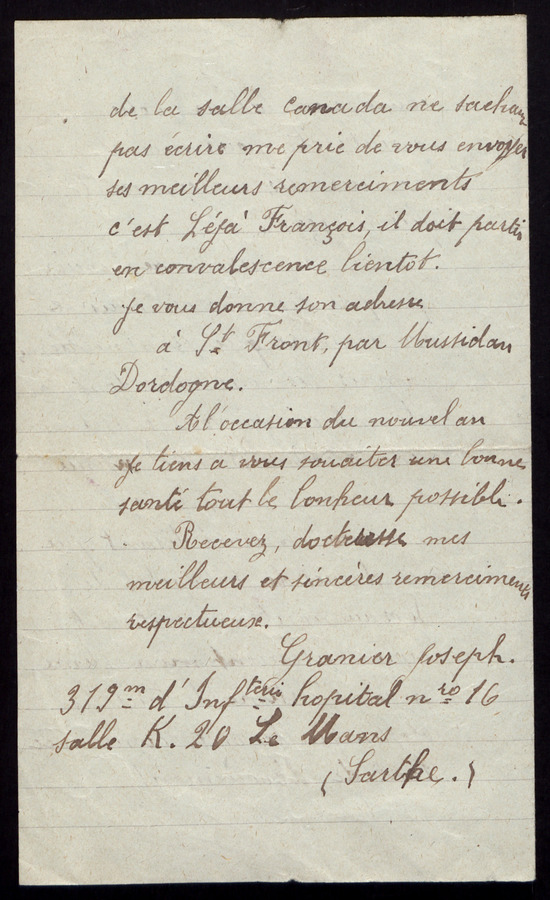 de la salle Canada ne sachant
pas écrire me prie de vous envoyer
ses meilleurs remerciments
c'est Léjà François, il doit partir
en convalescence bientot.
Je vous donne son adresse
à St Front, par Mussidan
Dordogne.
A l'occasion du nouvel an
je tiens a vous souaiter une bonne
santé tout le bonheur possible.
Recevez, docteresse mes
meilleurs et sincères remerciments
respectueux.
Granier Joseph.
319m d'Infterie hopital nro 16
salle K. 20 Le Mans
(Sarthe.)